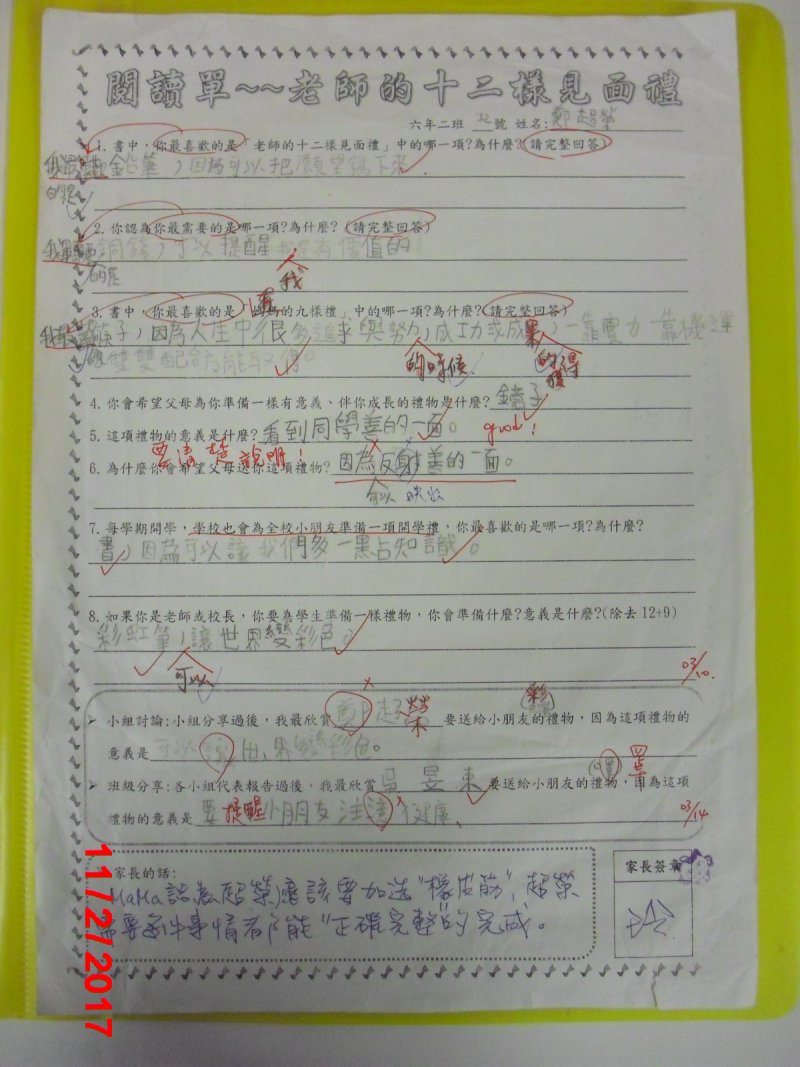 閱讀單~~老師的十二樣見面禮
六年二班 號 姓名: 鄭超榮
1. 書中，你最喜歡的是「老師的十二樣見面禮」中的哪一項?為什麼?(請完整回答)
鉛筆，因為可以把願望寫下來
的是
2. 你認為你最需要的是哪一項?為什麼? (請完整回答)
銅錢，可以提醒我是有價值的
的是
我
3. 書中，你最喜歡的是「媽媽的九樣禮」中的哪一項?為什麼?(請完整回答)
筷子，因為人生中很多追求與努力，成功或成果，一靠實力 靠機運
雙雙配合方能取得。
的時候 的獲得
4. 你會希望父母為你準備一樣有意義、伴你成長的禮物是什麼? 鏡子
5. 這項禮物的意義是什麼? 看到同學善的一面。 good!
要清楚說明!
6. 為什麼你會希望父母送你這項禮物? 因為反射善的一面。
可以映照
7. 每學期開學，學校也會為全校小朋友準備一項開學禮，你最喜歡的是哪一項?為什麼?
書，因為可以讓我們多一點知識。
8. 如果你是老師或校長，你要為學生準備一樣禮物，你會準備什麼?意義是什麼?(除去12+9)
彩虹筆，讓世界變彩色。
可以
03/10.
小組討論:小組分享過後，我最欣賞 鄭超榮 要送給小朋友的禮物，因為這項禮物的
意義是 可以讓世界變彩色。
班級分享:各小組代表報告過後，我最欣賞 吳昱東 要送給小朋友的禮物，因為這項
禮物的意義是 要提醒小朋友注意健康、
03/14
家長的話:
家長簽章
MaMa認為超榮應該要加送"橡皮筋"，超榮
需要每件事情都能"正確完整"的完成。
11/27/2017